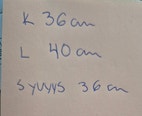 K 36 cm
L 40 cm
Syvyys 36 cm